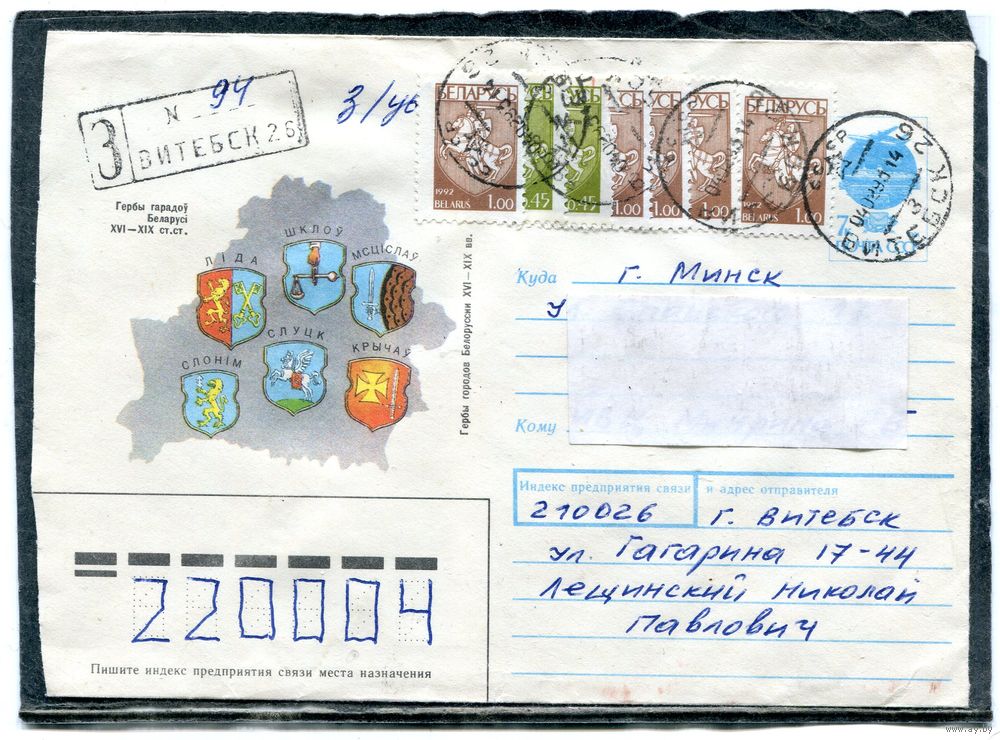 94
З/ув
N
З ВИТЕБСК 26
БЕЛАРУСЬ
1992 1.00
BELARUS
0.45
0.45
1.00
1.00
1.00
БЕЛАРУСЬ
1992 1.00
BELARUS
7к
ПОЧТА СССР
ВИТЕБСК 26
Гербы гарадоў
Беларусі
XVI—XIX ст.ст.
ШКЛОЎ
ЛІДА
МСЦІСЛАЎ
СЛУЦК
СЛОНІМ
КРЫЧАЎ
Гербы городов Белоруссии XVI—XIX вв.
Куда г. Минск
У
Кому
Индекс предприятия связи и адрес отправителя
210026 г. Витебск
ул. Гагарина 17-44
Лещинский Николай
Павлович
220004
Пишите индекс предприятия связи места назначения
www.ay.by